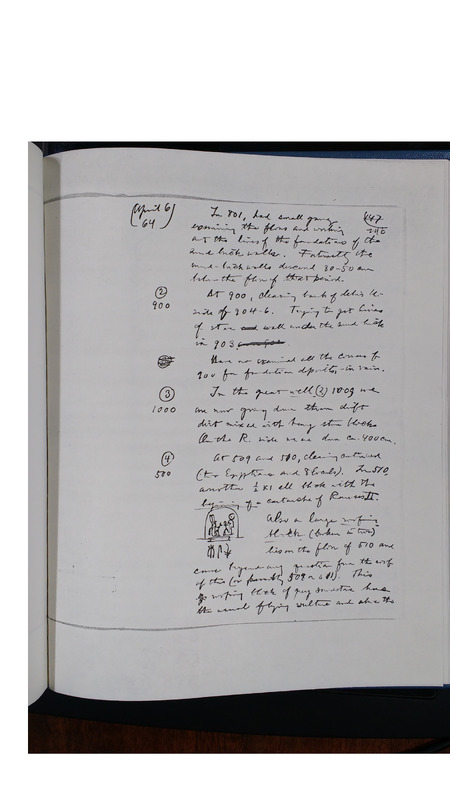 (April 6)
64
In 801, had small gang 147
examining the floors and working
out the lines of the foundations of the
mud brick walls. the
mud-brick walls descend 30-50 cm
below the floor of that period.
(2) At 900, clearing bank of debris
900 side of 904-6. Trying to get lines
of stone wall under the mud brick
in 903
Have now examined all the corners
900 for foundation deposits, in vain.
(3) In the great well (?) 1009 we
1000 are now going down through drift
dirt mixed with heavy stone blocks
On the R. side we are down ca. 400 cm.
(4) At 509 and 510, clearing continued
500 (two Egyptians and 8 locals). In 510,
another ½ x 1 ell block with the
beginning of a cartouche of Ramses II.
Also a large roofing
block (broken in two)
lies on the floor of 510 and
came beyond any question from the roof
of this (or possibly 509 or 511). This
roofing block of gray sandstone has
the usual flying vulture and also the